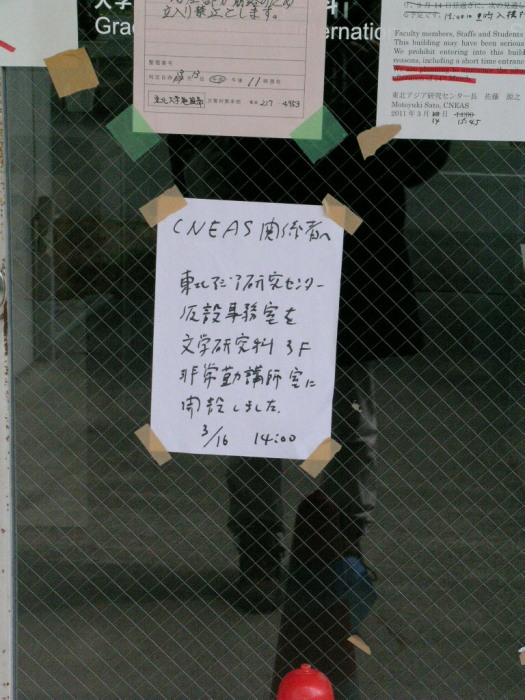 大学
Grad
ternation
立入り禁止とします。
整理番号
11時
東北大学施設部 災害対策本部 電話 217-4953
Faculty members, Staffs and Students
This building may have been seriou
We prohibit entering into this buildi
reasons, including a short time entrance
東北アジア研究センター長 佐藤 源之
Motoyuki Sato, CNEAS
2011年3月 日
14 15:45
CNEAS関係者へ
東北アジア研究センター
仮設事務室を
文学研究科 3F
非常勤講師室に
開設しました.
3/16 14:00